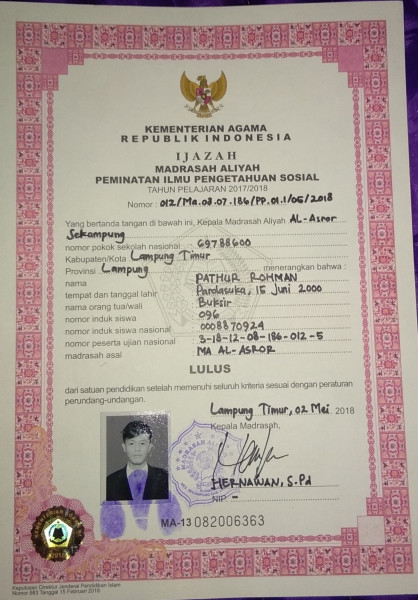 KEMENTERIAN AGAMA
REPUBLIK INDONESIA
IJAZAH
MADRASAH ALIYAH
PEMINATAN ILMU PENGETAHUAN SOSIAL
TAHUN PELAJARAN 2017/2018
Nomor : 012/Ma.08.07.186/PP.01.1/05/2018
Yang bertanda tangan di bawah ini, Kepala Madrasah Aliyah AL-Asror
Sekampung
nomor pokok sekolah nasional 69788600
Kabupaten/Kota Lampung Timur
Provinsi Lampung menerangkan bahwa :
nama PATHUR ROHMAN
tempat dan tanggal lahir Pardasuka, 15 Juni 2000
nama orang tua/wali Buksir
nomor induk siswa 096
nomor induk siswa nasional 0008870924
nomor peserta ujian nasional 3-18-12-08-186-012-5
madrasah asal MA AL-ASROR
LULUS
dari satuan pendidikan setelah memenuhi seluruh kriteria sesuai dengan peraturan
perundang-undangan.
Lampung Timur, 02 Mei 2018
Kepala Madrasah,
HERNAWAN, S.Pd
NIP. -
MA-13 082006363
Keputusan Direktur Jenderal Pendidikan Islam
Nomor 963 Tanggal 15 Februari 2018